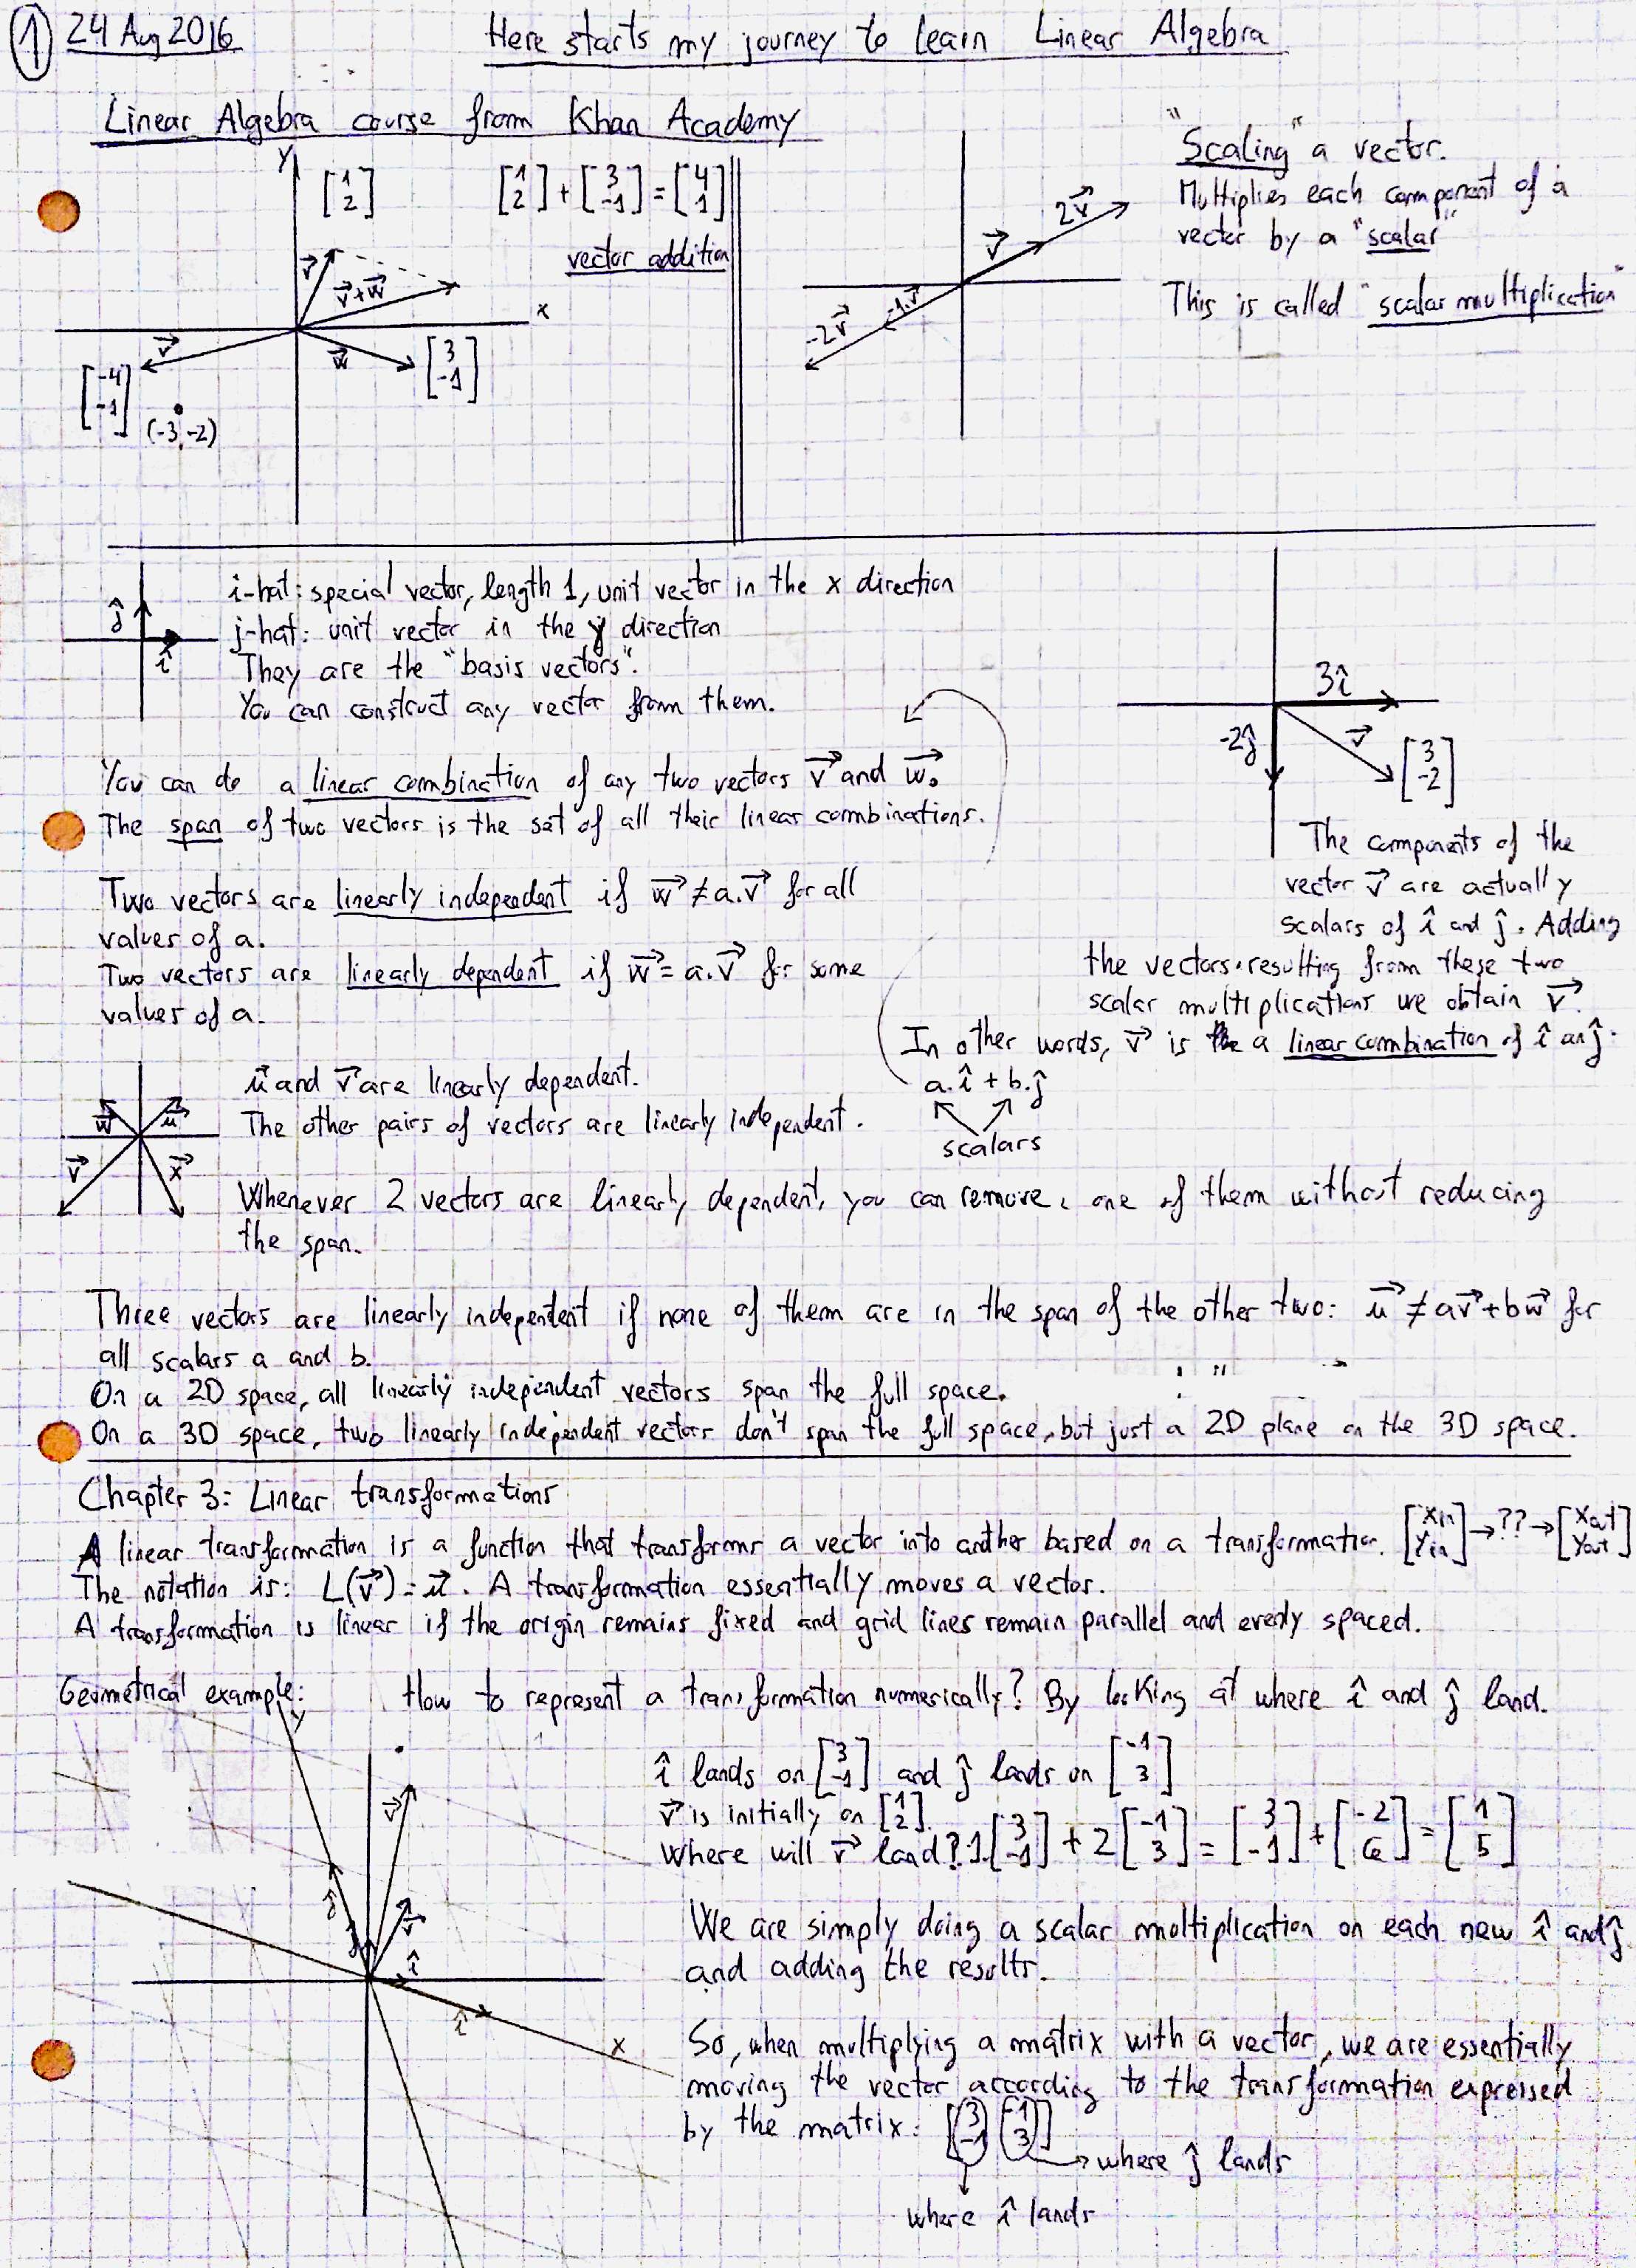 1 24 Aug 2016 Here starts my journey to learn Linear Algebra
Linear Algebra course from Khan Academy
y
[1 2] [1 2] + [3 -1] = [4 1]
vector addition
v⃗
v⃗+w⃗
x
v⃗
w⃗
[3 -1]
[-4 -1]
(-3,-2)
2v⃗
v⃗
-1.v⃗
-2v⃗
"Scaling" a vector.
Multiplies each component of a
vector by a "scalar"
This is called "scalar multiplication"
ĵ
î
i-hat: special vector, length 1, unit vector in the x direction
j-hat: unit vector in the y direction
They are the "basis vectors".
You can construct any vector from them.
You can do a linear combination of any two vectors v⃗ and w⃗.
The span of two vectors is the set of all their linear combinations.
Two vectors are linearly independent if w⃗ ≠ a.v⃗ for all
values of a.
Two vectors are linearly dependent if w⃗ = a.v⃗ for some
values of a.
3î
-2ĵ
v⃗
[3 -2]
The components of the
vector v⃗ are actually
scalars of î and ĵ. Adding
the vectors resulting from these two
scalar multiplications we obtain v⃗.
In other words, v⃗ is a linear combination of î an ĵ:
a.î + b.ĵ
scalars
w⃗
u⃗
v⃗
x⃗
u⃗ and v⃗ are linearly dependent.
The other pairs of vectors are linearly independent.
Whenever 2 vectors are linearly dependent, you can remove one of them without reducing
the span.
Three vectors are linearly independent if none of them are in the span of the other two: u⃗ ≠ av⃗ + bw⃗ for
all scalars a and b.
On a 2D space, all linearly independent vectors span the full space.
On a 3D space, two linearly independent vectors don't span the full space, but just a 2D plane on the 3D space.
Chapter 3: Linear transformations
A linear transformation is a function that transforms a vector into another based on a transformation. [Xin Yin] → ?? → [Xout Yout]
The notation is: L(v⃗) = u⃗. A transformation essentially moves a vector.
A transformation is linear if the origin remains fixed and grid lines remain parallel and evenly spaced.
Geometrical example:
y
v⃗
ĵ
v⃗
ĵ
î
î
x
How to represent a transformation numerically? By looking at where î and ĵ land.
î lands on [3 -1] and ĵ lands on [-1 3]
v⃗ is initially on [1 2].
Where will v⃗ land? 1.[3 -1] + 2[-1 3] = [3 -1] + [-2 6] = [1 5]
We are simply doing a scalar multiplication on each new î and ĵ
and adding the results.
So, when multiplying a matrix with a vector, we are essentially
moving the vector according to the transformation expressed
by the matrix: [(3 -1) (-1 3)]
→ where ĵ lands
where î lands